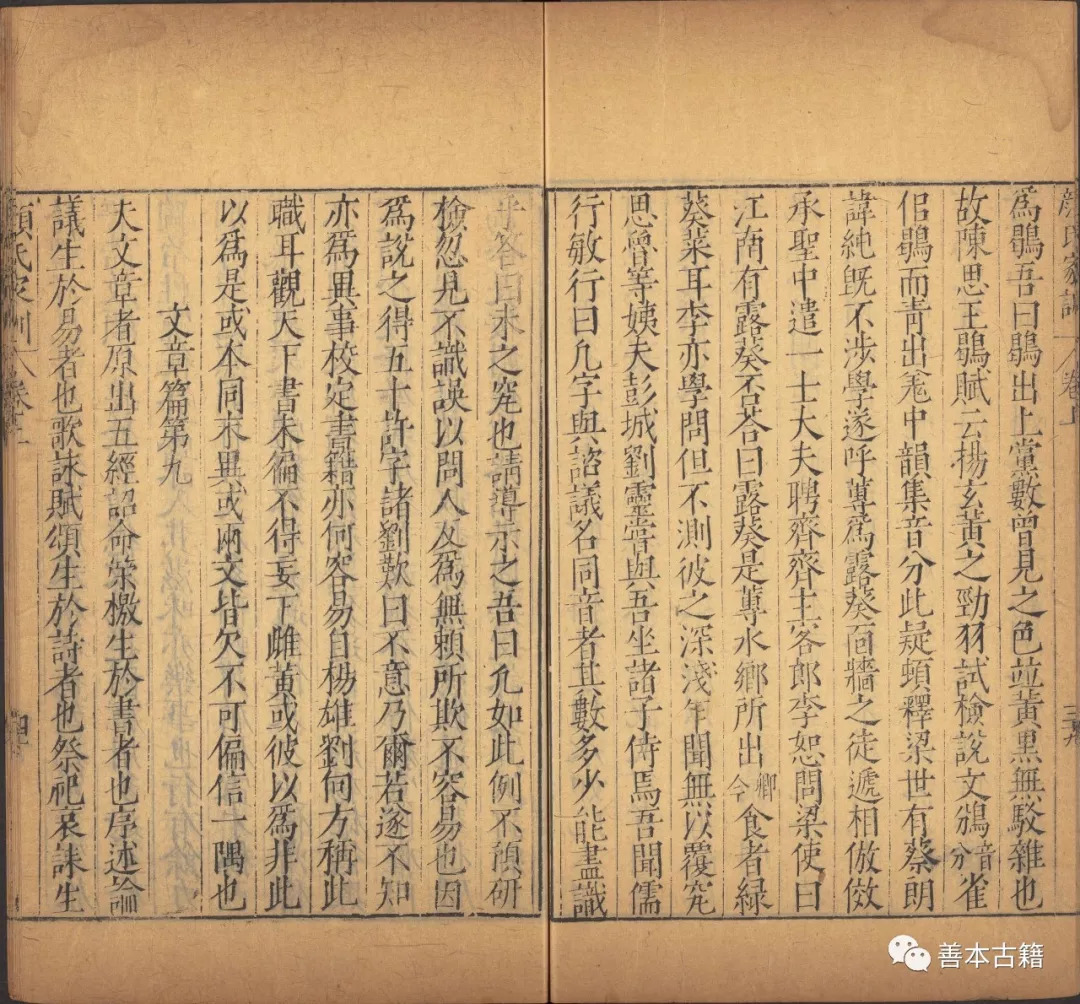 顏氏家訓 卷上
爲鶡吾曰鶡出上黨數曾見之色並黃黑無駁雜也
故陳思王鶡賦云揚玄黃之勁羽試檢說文鳻音分雀
侣鶡而青出羗中韻集音分此疑頓釋梁世有蔡朗
諱純旣不涉學遂呼蓴爲露葵面牆之徒遞相倣傚
承聖中遣一士大夫聘齊齊主客郎李恕問梁使曰
江南有露葵否荅曰露葵是蓴水鄉所出今卿食者緑
葵菜耳李亦學問但不測彼之深淺乍聞無以覆究
思魯等姨夫彭城劉靈嘗與吾坐諸子侍焉吾聞儒
行敏行曰凡字與諮議名同音者其數多少能盡識
乎答曰未之究也請導示之吾曰凡如此例不預研
檢忽見不識誤以問人反爲無賴所欺不容易也因
爲說之得五十許字諸劉歎曰不意乃爾若遂不知
亦爲異事校定書籍亦何容易自楊雄劉向方稱此
職耳觀天下書未徧不得妄下雌黃或彼以爲非此
以爲是或本同末異或兩文皆欠不可偏信一隅也
文章篇第九
夫文章者原出五經詔命策檄生於書者也序述論
議生於易者也歌詠賦頌生於詩者也祭祀哀誄生
顏氏家訓 卷上
善本古籍